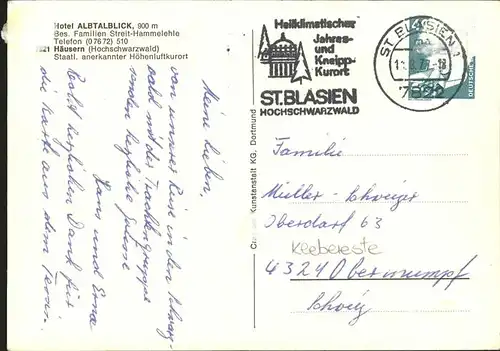 Hotel ALBTALBLICK, 900 m
Bes. Familien Streit-Hammelehle
Telefon (07672) 510
7821 Häusern (Hochschwarzwald)
Staatl. anerkannter Höhenluftkurort
Meine Lieben,
von unserer Reise in den Schwarz-
wald mit der Trachtengruppe
senden herzliche Grüsse
Hans und Erna
Recht herzlichen Dank für
die Karte aus dem Tessin.
Heilklimatischer
Jahres-
und
Kneipp-
Kurort
ST.BLASIEN
HOCHSCHWARZWALD
ST BLASIEN 1
7822
DEUTSCHE
Kunstanstalt KG, Dortmund
Familie
Müller-Schweizer
Oberdorf 63
Klebereste
4324 Obermumpf
Schweiz